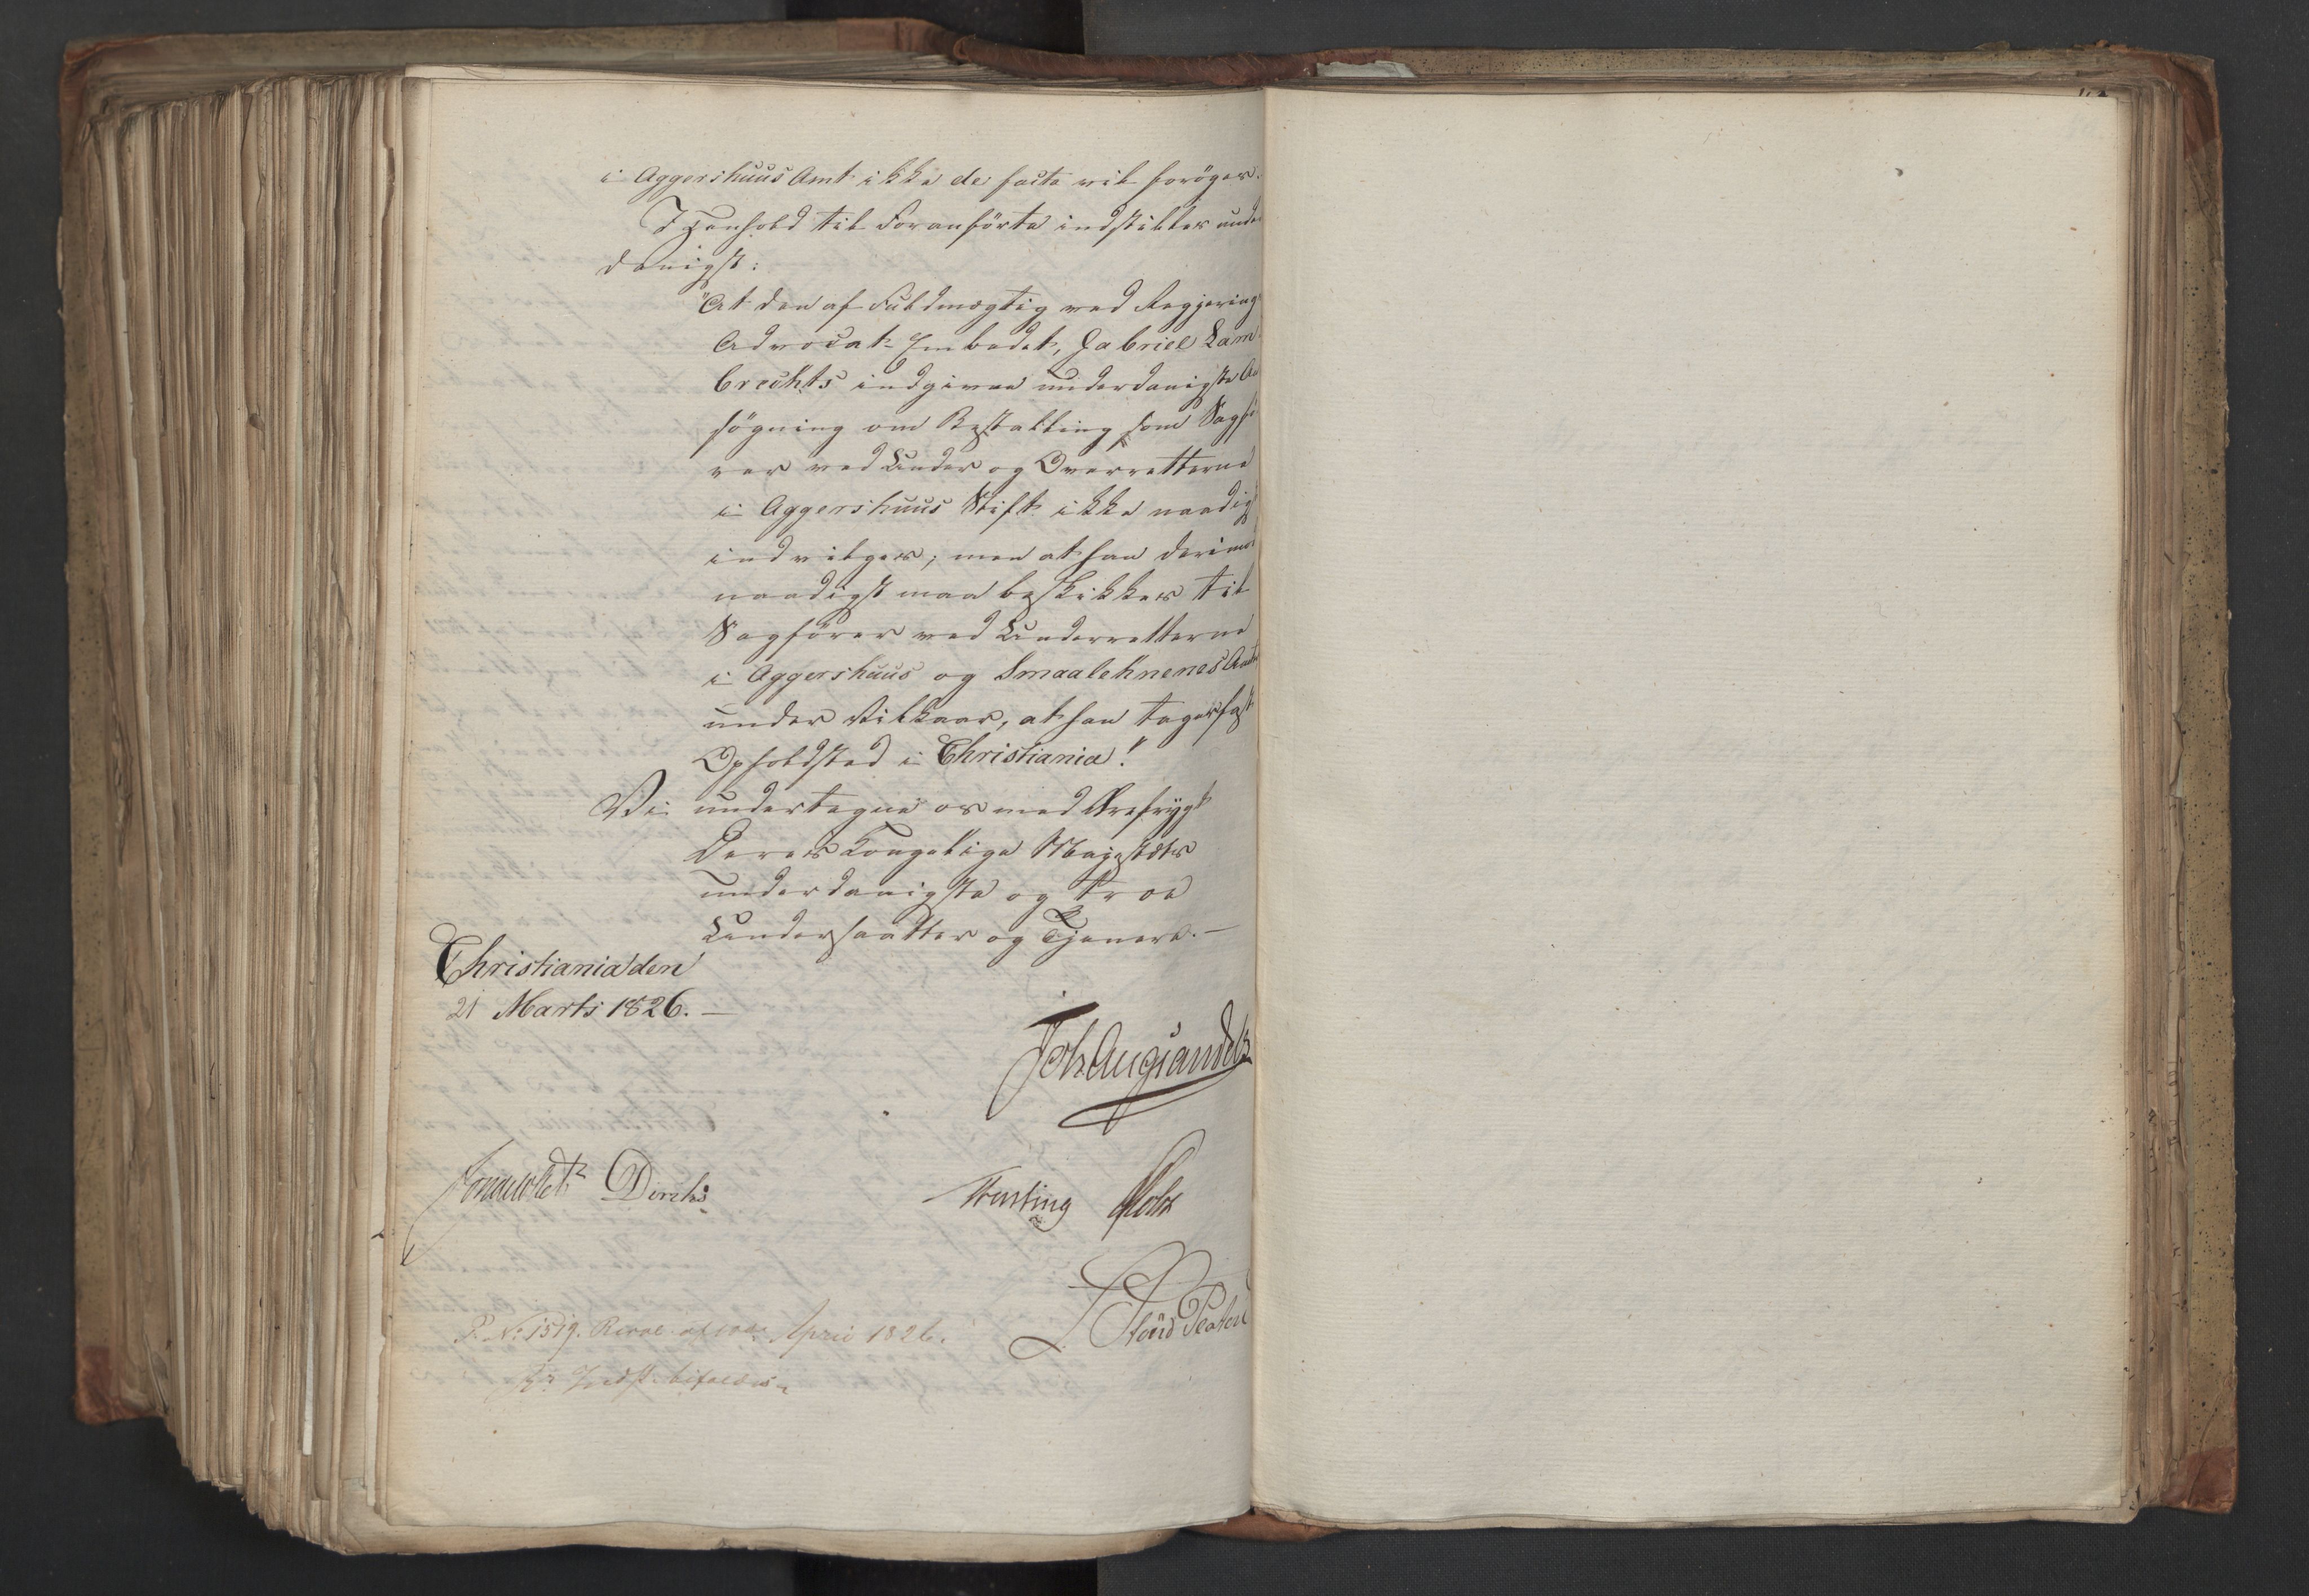 i Aggershuus Amt ikke de facto vil forøges.
I Henhold til Foranførte indstilles under
danigst:
"At den af Fuldmægtig ved Regjerings
Advocat-Embedet, Gabriel Lam
brechts indgivne underdanigste An
søgning om Bestalling som Sagfø
rer ved Under og Overretterne
i Aggershuus Stift ikke naadigst
indvilges; men at han derimod
naadigst maa beskikkes til
Sagfører ved Underretterne
i Aggershuus og Smaalehnenes Amter
under Vilkaar, at han tager fast
Opholdsted i Christiania."
Vi undertegne os med Ærefrygt
Deres Kongelige Majestæts
underdanigste og troe
Undersaatter og Tjenere. —
Christiania den
21 Marts 1826. —
Joh Aug Sandels
Diriks
Treschow
L. Stoud Platou
No 1519. Resol. af April 1826.
Indst. bifaldes